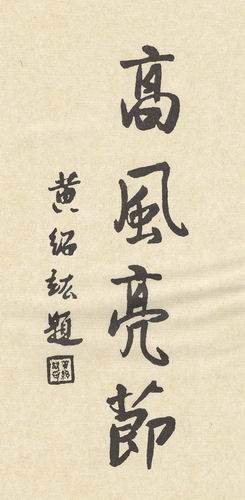 高風亮節
黄紹竑題